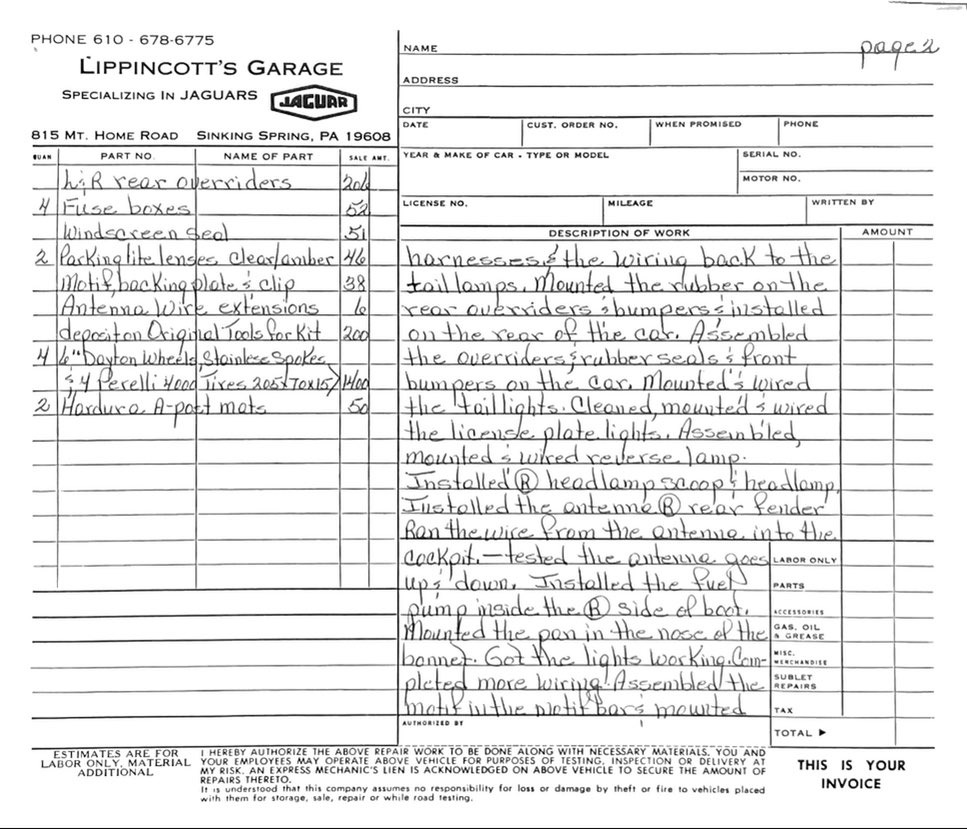 PHONE 610 - 678-6775
LIPPINCOTT'S GARAGE
SPECIALIZING IN JAGUARS
JAGUAR
815 MT. HOME ROAD SINKING SPRING, PA 19608
page 2
NAME
ADDRESS
CITY
DATE CUST. ORDER NO. WHEN PROMISED PHONE
YEAR & MAKE OF CAR - TYPE OR MODEL SERIAL NO.
MOTOR NO.
LICENSE NO. MILEAGE WRITTEN BY
QUAN PART NO. NAME OF PART SALE AMT.
L&R rear overriders 206
4 Fuse boxes 52
Windscreen seal 51
2 Parking lite lenses, clear/amber 46
Motif, backing plate & clip 38
Antenna Wire extensions 6
deposit on Original Tools for Kit 200
4 6" Dayton Wheels, Stainless Spokes
& 4 Perelli 4000 Tires 205x70x15 1400
2 Hardura A-post mats 50
DESCRIPTION OF WORK AMOUNT
harnesses & the wiring back to the
taillamps. Mounted the rubber on the
rear overriders & bumpers & installed
on the rear of the car. Assembled
the overriders, rubber seals & front
bumpers on the car. Mounted & wired
the taillights. Cleaned, mounted & wired
the license plate lights. Assembled,
mounted & wired reverse lamp.
Installed Ⓡ headlamp scoop & headlamp.
Installed the antenna Ⓡ rear fender
Ran the wire from the antenna into the
cockpit. — tested the antenna goes
up & down. Installed the fuel
pump inside the Ⓡ side of boot.
Mounted the pan in the nose of the
bonnet. Got the lights working. Com-
pleted more wiring. Assembled the
motif in the motif bar & mounted
LABOR ONLY
PARTS
ACCESSORIES
GAS, OIL
& GREASE
MISC.
MERCHANDISE
SUBLET
REPAIRS
TAX
AUTHORIZED BY
TOTAL ▶
ESTIMATES ARE FOR
LABOR ONLY, MATERIAL
ADDITIONAL
I HEREBY AUTHORIZE THE ABOVE REPAIR WORK TO BE DONE ALONG WITH NECESSARY MATERIALS. YOU AND
YOUR EMPLOYEES MAY OPERATE ABOVE VEHICLE FOR PURPOSES OF TESTING, INSPECTION OR DELIVERY AT
MY RISK. AN EXPRESS MECHANIC'S LIEN IS ACKNOWLEDGED ON ABOVE VEHICLE TO SECURE THE AMOUNT OF
REPAIRS THERETO.
It is understood that this company assumes no responsibility for loss or damage by theft or fire to vehicles placed
with them for storage, sale, repair or while road testing.
THIS IS YOUR
INVOICE